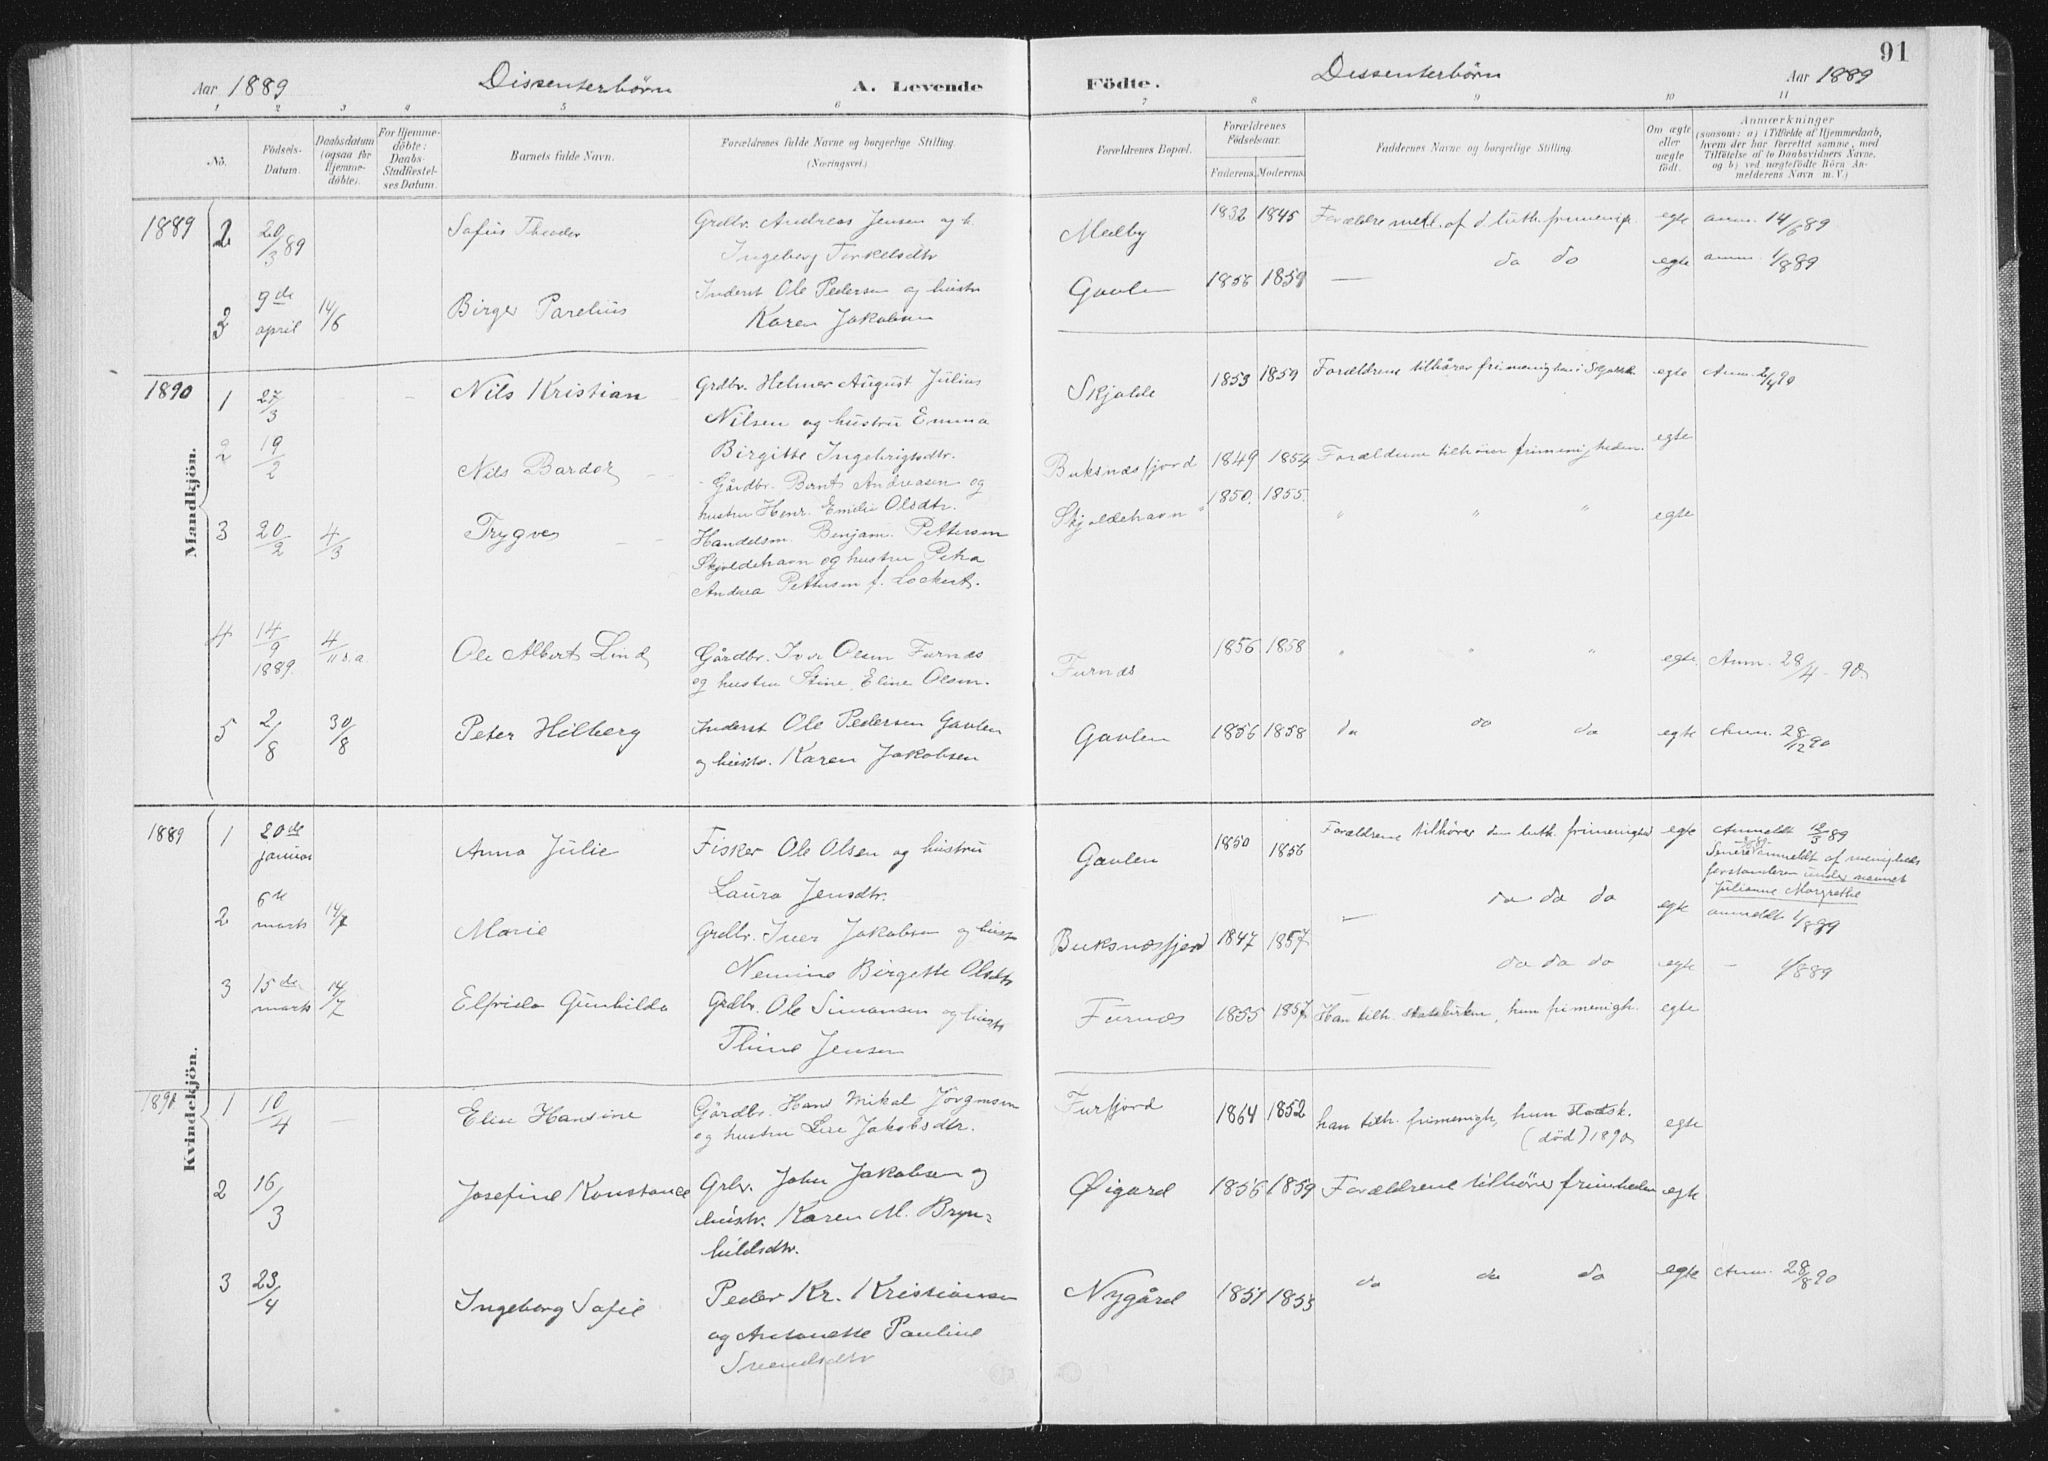 91
Aar 1889 Dissenterbörn A. Levende Födte. Dissenterbörn Aar 1889
1 2 3 4 5 6 7 8 9 10 11
No. Födsels-Datum. Daabsdatum (ogsaa for Hjemmedöbte). For Hjemmedöbte: Daabs-Stadfæstelses Datum. Barnets fulde Navn. Forældrenes fulde Navne og borgerlige Stilling. (Næringsvei.) Forældrenes Bopæl. Forældrenes Födselsaar. Faderens. Moderens. Faddernes Navne og borgerlige Stilling. Om ægte eller uægte födt. Anmærkninger (saasom: a) i Tilfælde af Hjemmedaab, hvem der har forrettet samme, med Tilföielse af to Daabsvidners Navne, og b) ved uægtefödte Börn Anmelderens Navn m. V.)
Mandkjön.
1889 2 20/3 89 Sofius Theodor Grdbr. Andreas Jensen og h. Medby 1832 1845 Forældre medl. af d. luth. frimenigh. egte anm. 14/6 89
Ingeborg Torkelsdtr
3 9de april 14/6 Birger Parelius Inderst Ole Pedersen og hustr Gavlen 1856 1859 — do do egte anm. 1/8 89
Karen Jakobsen
1890 1 27/3 Nils Kristian Grdbr. Helmer August Julius Skjolde 1853 1859 Forældrene tilhører frimenighen i egte Anm. 2/4 90
Nilsen og hustru Emma
Birgitte Ingebrigtsdtr.
2 19/2 Nils Bardor Gårdbr. Bernt Andreasen og Buksnæsfjord 1849 1854 Forældrene tilhører frimenigheden. egte
hustru Henr. Emilie Olsdtr.
3 20/2 4/3 Trygve Handelsm. Benjam. Pettersen Skjoldehavn 1850. 1855. " " " egte
Skjoldehavn og hustru Petra
Andrea Pettersen f. Lockert.
4 14/9 1889. 4/11 s.a. Ole Albert Lind Gårdbr. Iver Olsen Furnæs Furnæs 1856 1858 " " " egte. Anm. 28/4 - 90
og hustru Stine Eline Olsen.
5 2/8 30/8 Peter Hilberg Inderst Ole Pedersen Gavlen Gavlen 1856 1858 do do do egte Anm. 28/12 90
og hustr. Karen Jakobsen
Kvindekjön.
1889 1 20de januar Anna Julie Fisker Ole Olsen og hustru Gavlen 1850 1856 Forældrene tilhører den luth. frimenighed egte Anmeldt 12/3 89
Laura Jensdtr.
Senere anmeldt af menigheds
forstanderen under navnet
Julianne Margrethe
2 6te marts 14/7 Marie Grdbr. Iver Jakobsen og hustr Buksnæsfjord 1847 1857 — do do do egte anmeldt 1/8 89
Nemine Birgitte Olsdtr
3 15de marts 14/7 Elfrida Gunhilda Grdbr. Ole Simonsen og hustr Furnæs 1855 1857 do do do egte — 1/8 89
Thine Jensen
Han tilh. statskirken, hun frimenigh. egte
1890 1 10/4 — Elise Hansine Gårdbr. Hans Mikal Jörgensen Furfjord 1864 1852 han tilh. frimenigh, hun statsk. egte
og hustru Jakobsdtr. (död) 1890
2 16/3 Josefine Konstance Grbr. John Jakobsen og Øigard 1856 1859 Forældrene tilhører frimheden egte
hustr. Karen M. Bryn=
hildsdtr.
3 23/4 Ingeborg Sofie Peder Kr. Kristiansen Nygård 1851 1853 do do do egte Anm. 28/8 90
og Antonette Pauline
Svendsdtr